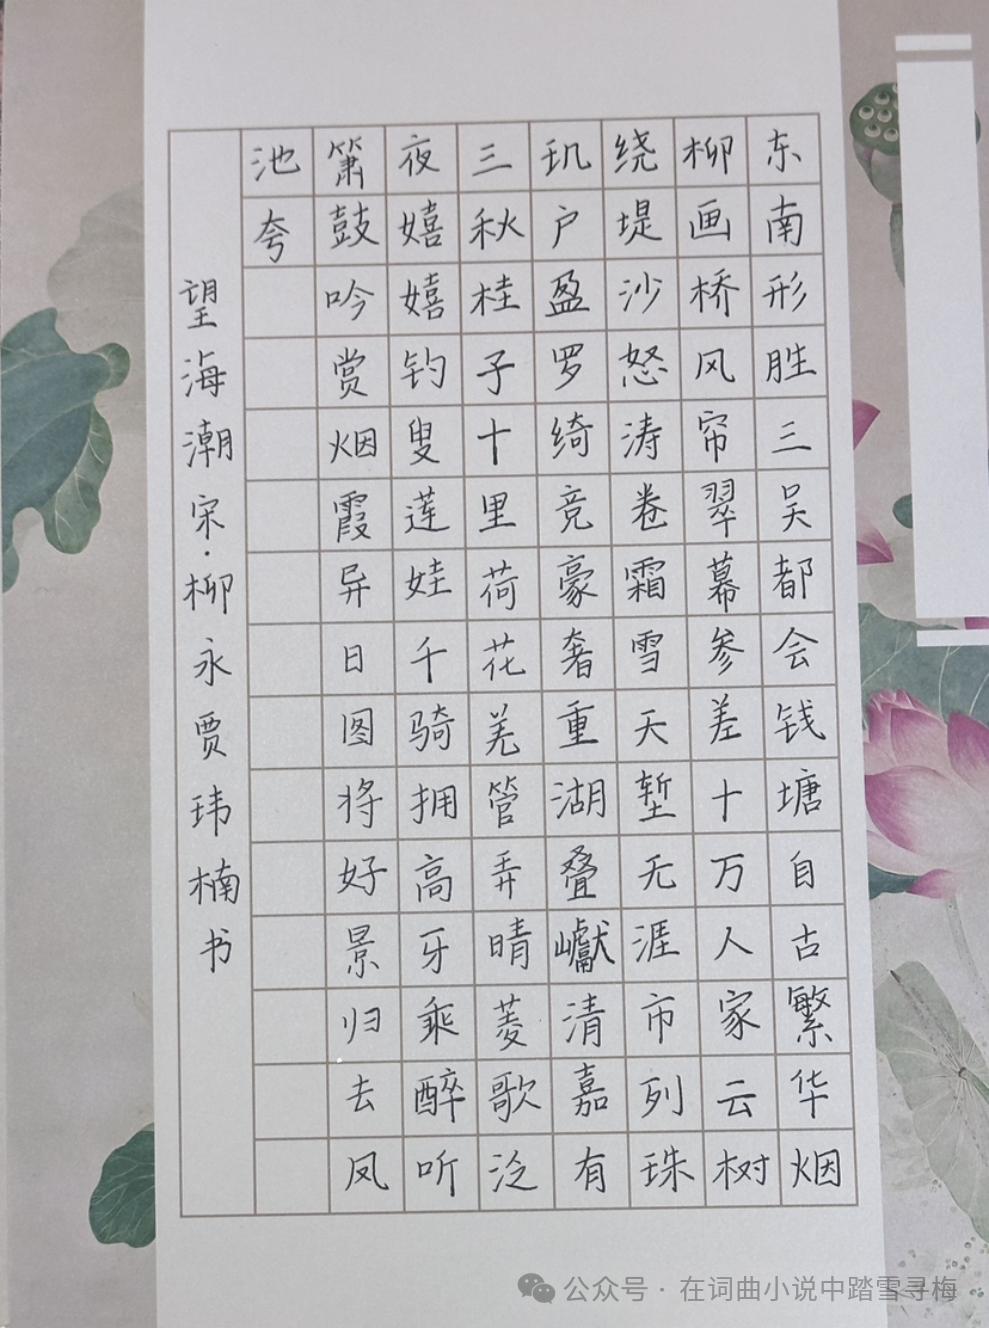 东南形胜三吴都会钱塘自古繁华烟
柳画桥风帘翠幕参差十万人家云树
绕堤沙怒涛卷霜雪天堑无涯市列珠
玑户盈罗绮竞豪奢重湖叠巘清嘉有
三秋桂子十里荷花羌管弄晴菱歌泛
夜嬉嬉钓叟莲娃千骑拥高牙乘醉听
箫鼓吟赏烟霞异日图将好景归去凤
池夸
望海潮宋·柳永贾玮楠书
公众号·在词曲小说中踏雪寻梅